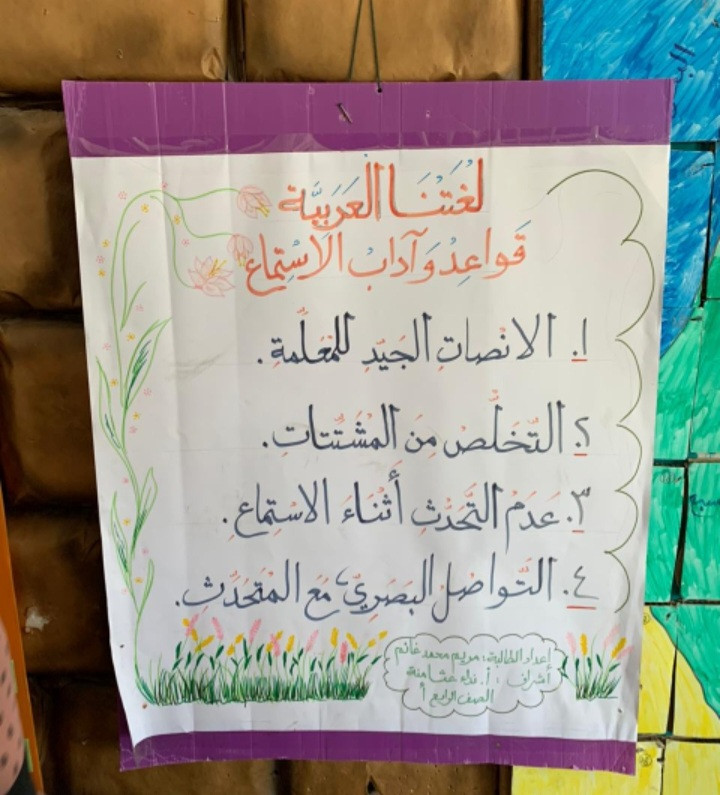 لُغَتُنَا العَرَبِيَّة
قَواعِدُ وَآدابُ الاسْتِماعِ
١. الانْصاتِ الجَيّدِ للمُعَلّمةِ.
٢. التّخَلّص مِنَ المشَتّتاتِ.
٣. عَدَمُ التَّحَدّثِ أَثْنَاءَ الاسْتِماعِ.
٤. التّواصُل البَصَرِيّ، مَعَ المتَحَدّث.
إعداد الطالبة: مريم محمد غانم
أشراف : أ. نداء عثامنة
الصف الرابع أ